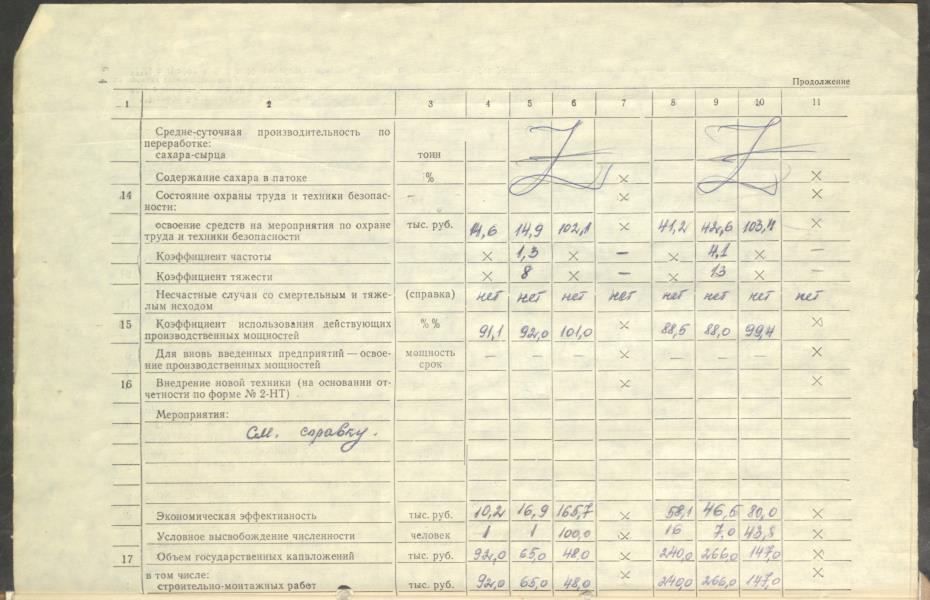 Продолжение
1 2 3 4 5 6 7 8 9 10 11
Средне-суточная производительность по
переработке:
сахара-сырца тонн
Содержание сахара в патоке % × ×
14 Состояние охраны труда и техники безопас- × ×
ности:
освоение средств на мероприятия по охране тыс. руб. 14,6 14,9 102,1 × 41,2 42,6 103,4 ×
труда и техники безопасности
Коэффициент частоты × 1,3 × — × 4,1 × —
Коэффициент тяжести × 8 × — × 13 × —
Несчастные случаи со смертельным и тяже- (справка) нет нет нет нет нет нет нет нет
лым исходом
15 Коэффициент использования действующих %%
производственных мощностей 91,1 92,0 101,0 × 88,5 88,0 99,4 ×
Для вновь введенных предприятий — освое- мощность — — — × — — — ×
ние производственных мощностей срок
16 Внедрение новой техники (на основании от- × ×
четности по форме № 2-НТ)
Мероприятия:
См. справку.
Экономическая эффективность тыс. руб. 10,2 16,9 165,7 × 58,1 46,5 80,0 ×
Условное высвобождение численности человек 1 1 100,0 × 16 7,0 43,8 ×
17 Объем государственных капвложений тыс. руб. 92,0 65,0 48,0 × 240,0 266,0 147,0 ×
в том числе:
строительно-монтажных работ тыс. руб. 92,0 65,0 48,0 × 240,0 266,0 147,0 ×